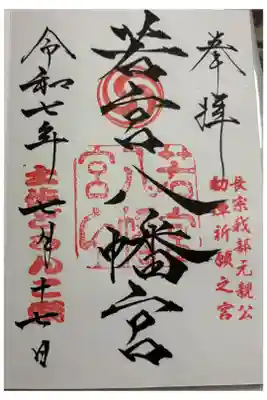 奉拝
長宗我部元親公
初陣祈願之宮
若宮八幡宮
若宮
八幡
宮
令和七年七月十七日